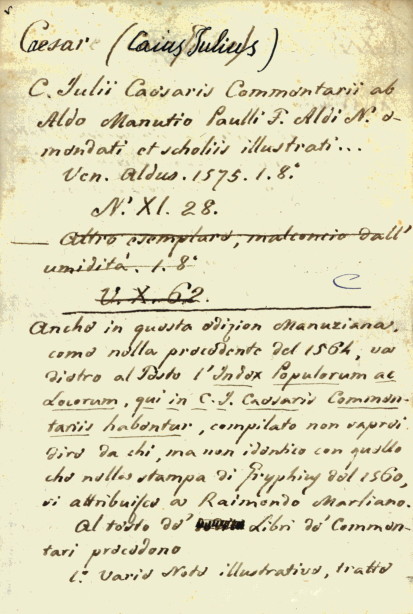 Caesar (Caius Julius)
C. Julii Caesaris Commentarii ab
Aldo Manutio Paulli F. Aldi N. e-
mendati et scholiis illustrati...
Ven. Aldus. 1575. 1. 8.°
N.° XI. 28.
Altro esemplare, malconcio dall'
umidità. 1. 8.°
U. X. 62.
Anche in questa edizion Manuziana,
come nella precedente del 1564, va
dietro al Testo l'Index Populorum ac
Locorum, qui in C. J. Caesaris Commen-
tariis habentur, compilato non saprei
dire da chi, ma non identico con quello
che nella stampa di Gryphius del 1560,
si attribuisce a Raimondo Marliano.
Al testo de' Libri de' Commen-
tari precedono
1.° Varie Note illustrative, tratte